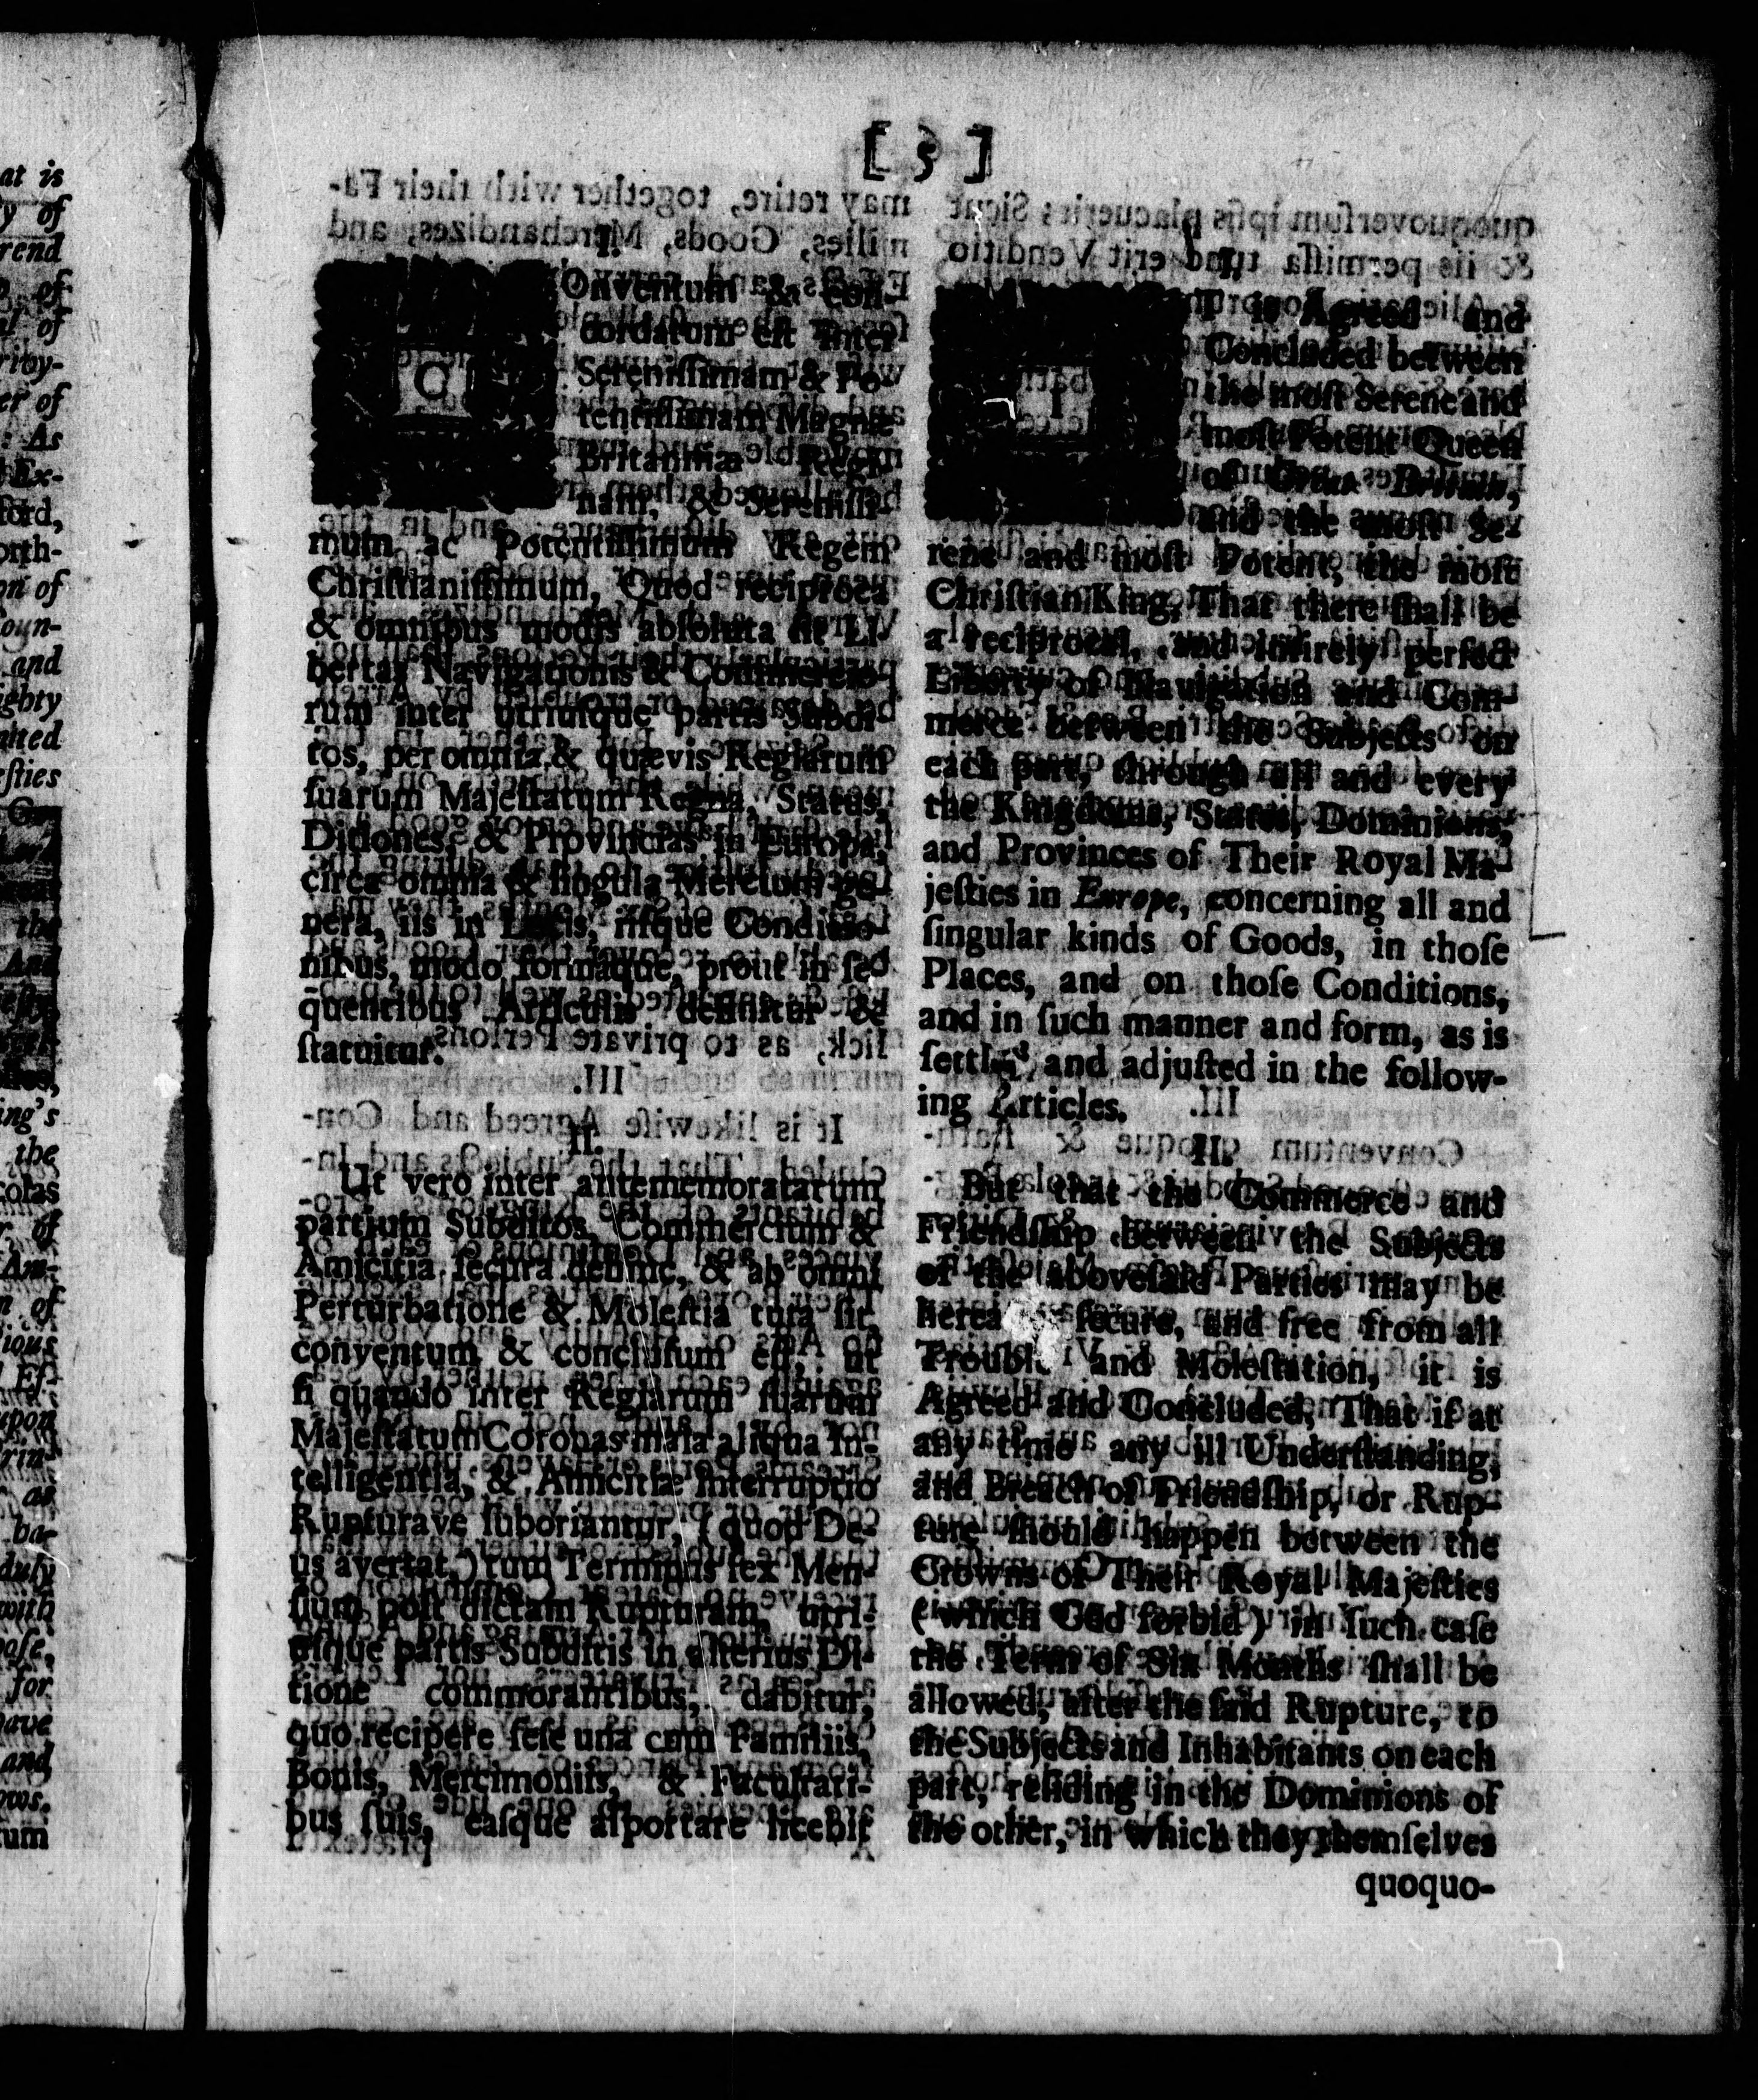 [ 5 ]
I.
COnventum & con-
cordatum est inter
Serenissimam & Po-
tentissimam Magnæ
Britanniæ Regi-
nam, & Serenissi-
mum ac Potentissimum Regem
Christianissimum, Quod reciproca
& omnibus modis absoluta sit Li-
bertas Navigationis & Commercio-
rum inter utriusque partis Subdi-
tos, per omnia & quævis Regiarum
suarum Majestatum Regna, Status,
Ditiones, & Provincias in Europa,
circa omnia & singula Mercium ge-
nera, iis in Locis, iisque Conditio-
nibus, modo formaque, prout in se-
quentibus Articulis definitur &
statuitur.
II.
Ut vero inter antememoratarum
partium Subditos, Commercium &
Amicitia secura dehinc, & ab omni
Perturbatione & Molestia tuta sit,
conventum & conclusum est, ut
si quando inter Regiarum suarum
Majestatum Coronas mala aliqua In-
telligentia, & Amicitiæ Interruptio
Rupturave suboriantur, (quod De-
us avertat,) tum Terminus sex Men-
sium post dictam Rupturam, utri-
usque partis Subditis in alterius Di-
tione commorantibus, dabitur,
quo recipere sese una cum Familiis,
Bonis, Mercimoniis, & Facultati-
bus suis, easque asportare licebit
I.
IT is Agreed and
Concluded between
the most Serene and
most Potent Queen
of Great Britain,
and the most Se-
rene and most Potent, the most
Christian King, That there shall be
a reciprocal, and intirely perfect
Liberty of Navigation and Com-
merce between the Subjects on
each part, through all and every
the Kingdoms, States, Dominions,
and Provinces of Their Royal Ma-
jesties in Europe, concerning all and
singular kinds of Goods, in those
Places, and on those Conditions,
and in such manner and form, as is
settled and adjusted in the follow-
ing Articles.
II.
But that the Commerce and
Friendship between the Subjects
of the abovesaid Parties may be
secure, and free from all
Trouble and Molestation, it is
Agreed and Concluded, That if at
any time any ill Understanding,
and Breach of Friendship, or Rup-
ture should happen between the
Crowns of Their Royal Majesties
(which God forbid) in such case
the Term of Six Months shall be
allowed, after the said Rupture, to
the Subjects and Inhabitants on each
part, residing in the Dominions of
the other, in which they themselves
quoquo-